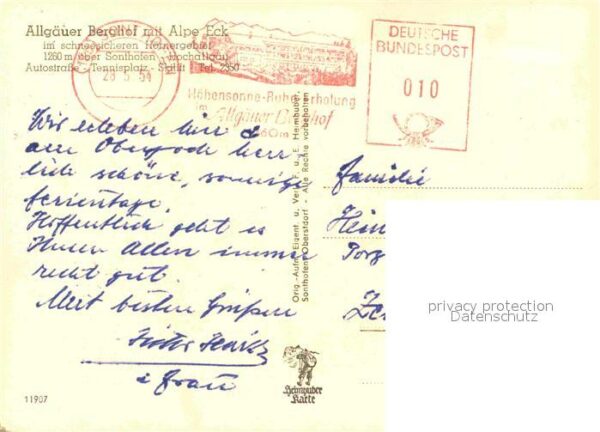 Allgäuer Berghof mit Alpe Eck
im schneesicheren Hörnergebiet
1260 m über Sonthofen - Hochallgäu
Autostraße - Tennisplatz - Skilift - Tel. 2350
Höhensonne-Ruhe-Erholung
im Allgäuer Berghof
1260m
DEUTSCHE
BUNDESPOST
010
Wir erleben hier
herr
lich schöne, sonnige
Ferientage.
Hoffentlich geht es
Ihnen Allen immer
recht gut.
Mit besten Grüßen
Frau
Orig.-Aufn. Eigent. u. Verl. F. u. E. Heimhuber,
Sonthofen/Oberstdorf - Alle Rechte vorbehalten
Familie
Hein
privacy protection
Datenschutz
Heimhuber
Karte
11907